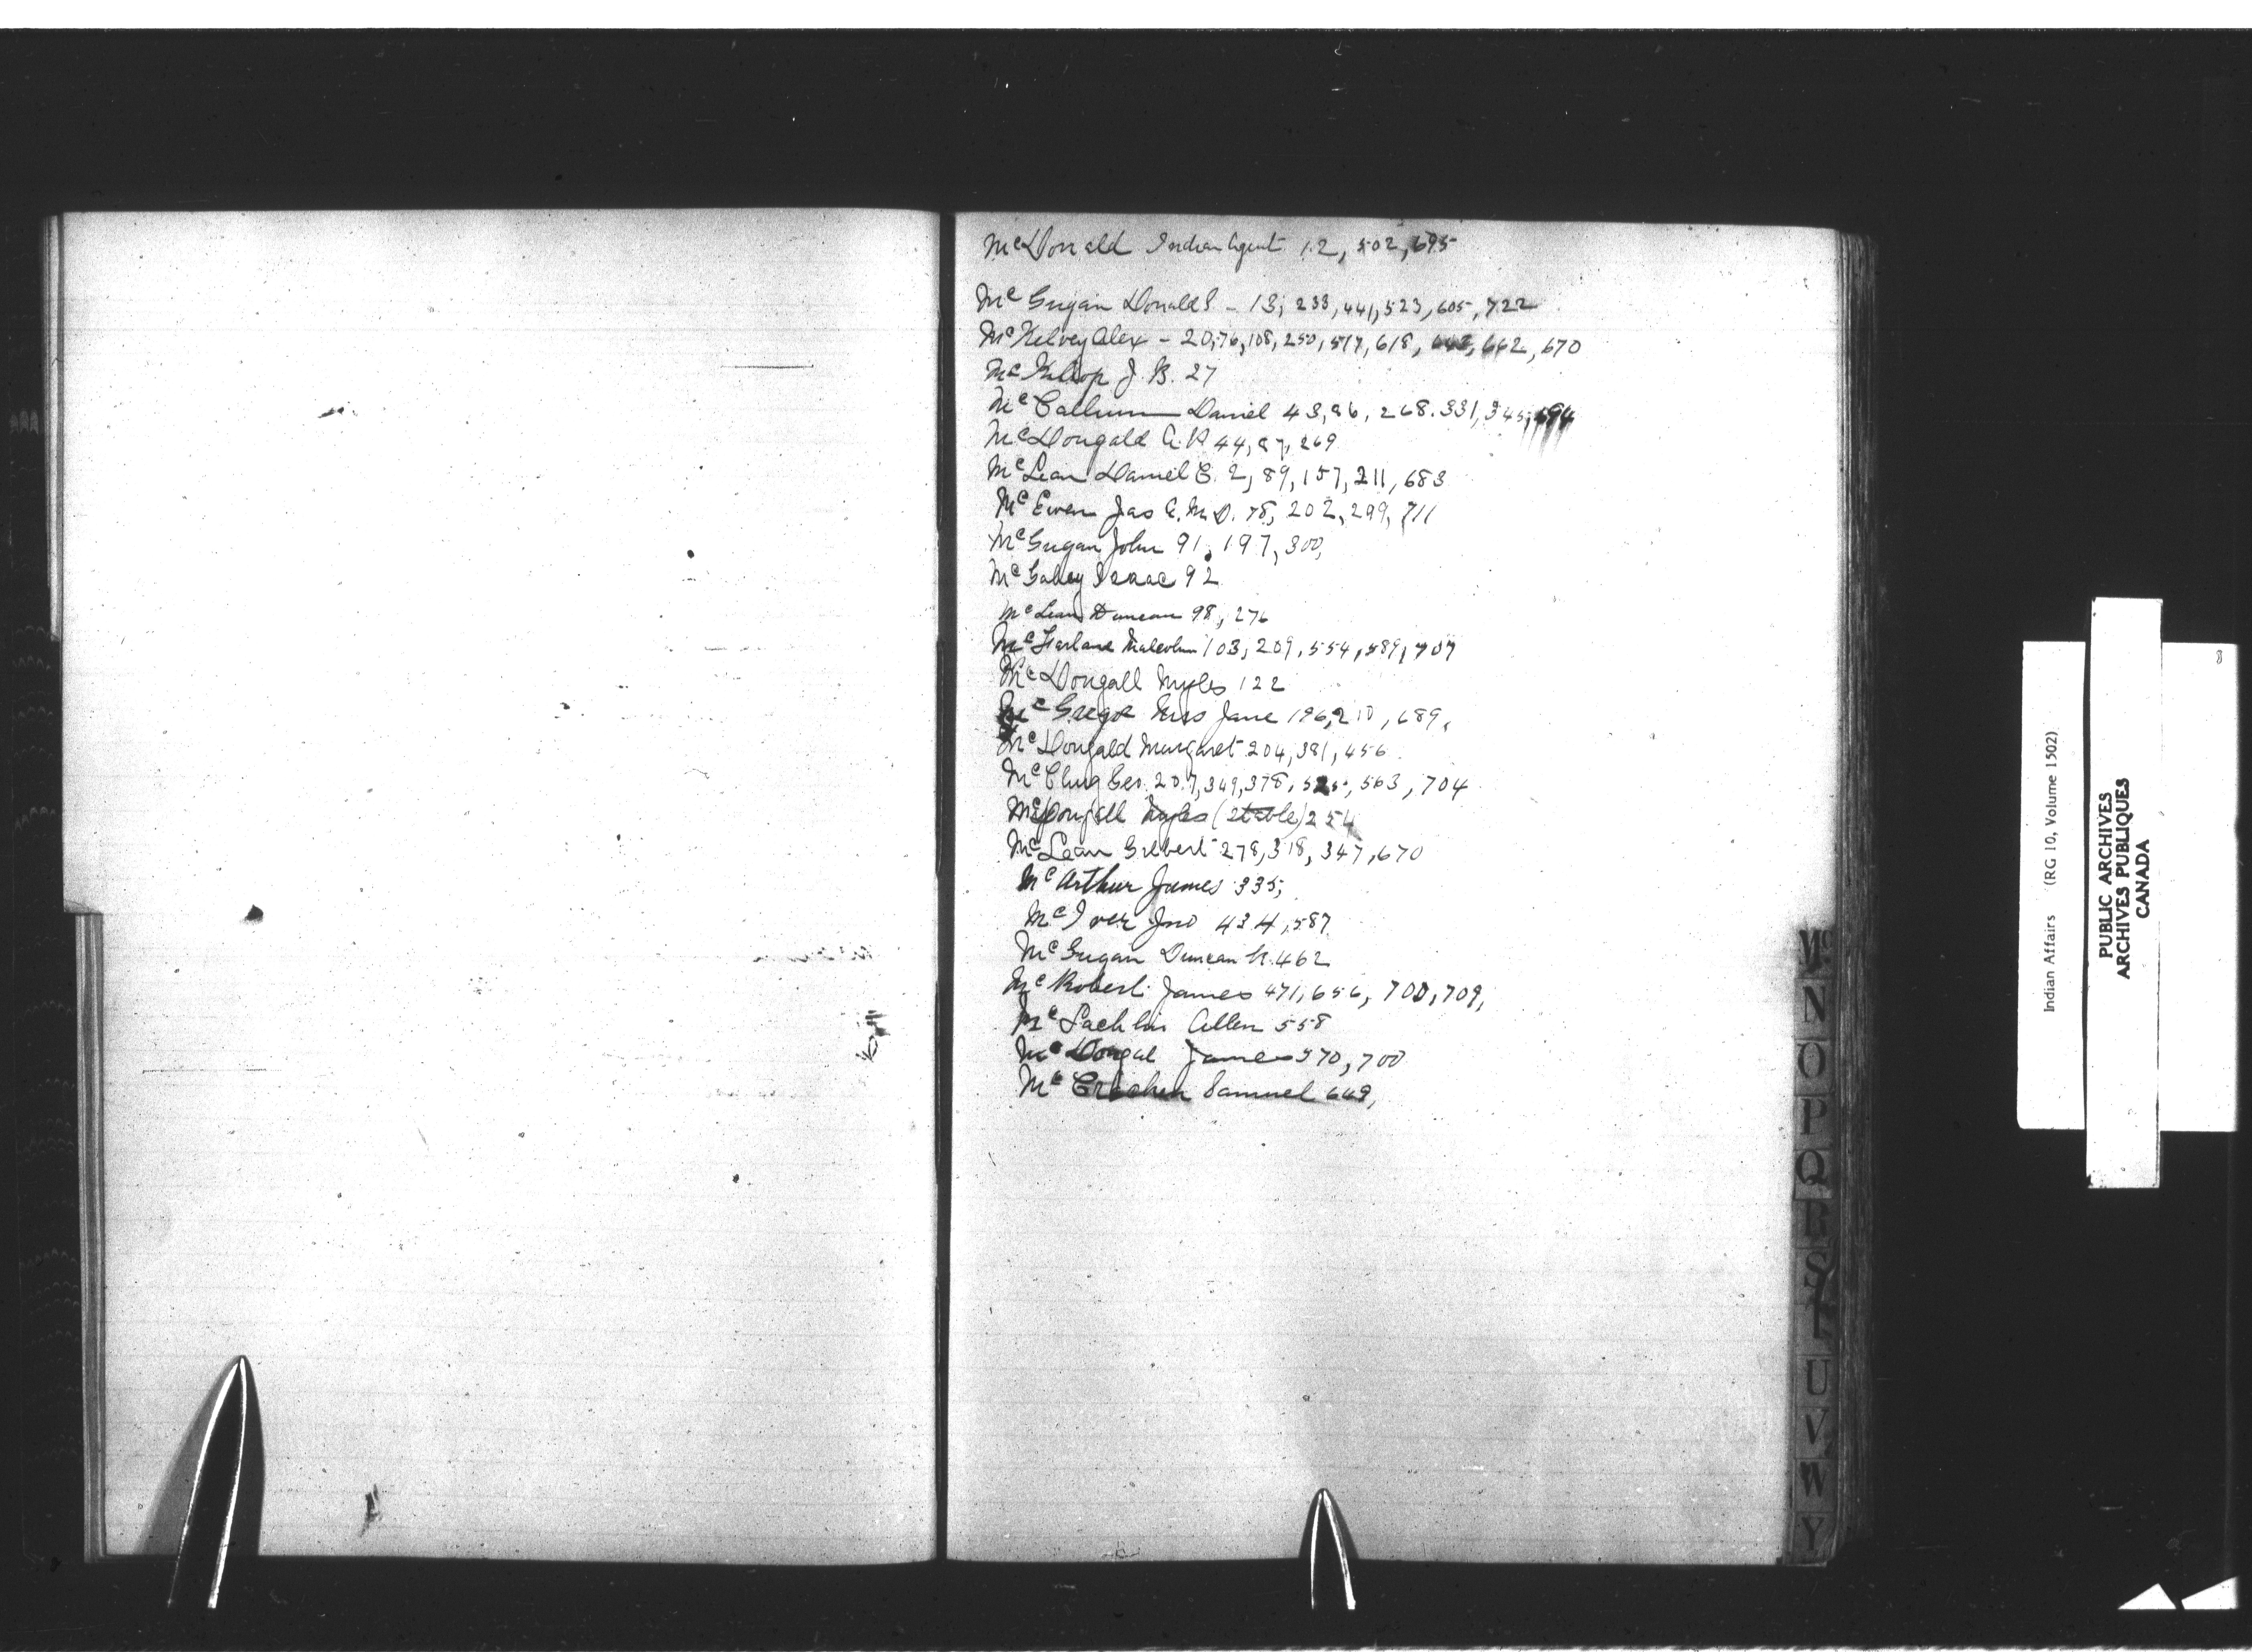 McDonald Indian Agent 12, 502, 695
McGugan Donald S - 13, 233, 441, 523, 605, 722
McKelvey Alex - 20, 76, 108, 250, 517, 618, 662, 670
McKillop J. B. 27
McCallum Daniel 43, 86, 268. 331, 345, 694
McDougald A. R 44, 87, 269
McLean Daniel C. 2, 89, 157, 211, 683
McEwen Jas E. M. D. 78, 202, 299, 711
McGugan John 91, 197, 300,
McGahey Isaac 92
McLean Duncan 98, 276
McFarlane Malcolm 103, 209, 554, 589, 707
McDougall Myles 122
McGregor Mrs Jane 196, 210, 689,
McDougald Margaret 204, 381, 456
McClung Geo. 207, 349, 378, 525, 563, 704
McDougall Myles (Stable) 254
McLean Gilbert 278, 318, 347, 670
McArthur James 335,
McIver Jno 434, 587
McGugan Duncan N. 462
McRobert James 471, 656, 700, 709,
McLachlin Allen 558
McDougal James 570, 700
McCracken Samuel 649,
Mc
N
O
P
Q
R
S
T
U
V
W
Y
Indian Affairs (RG 10, Volume 1502)
PUBLIC ARCHIVES
ARCHIVES PUBLIQUES
CANADA